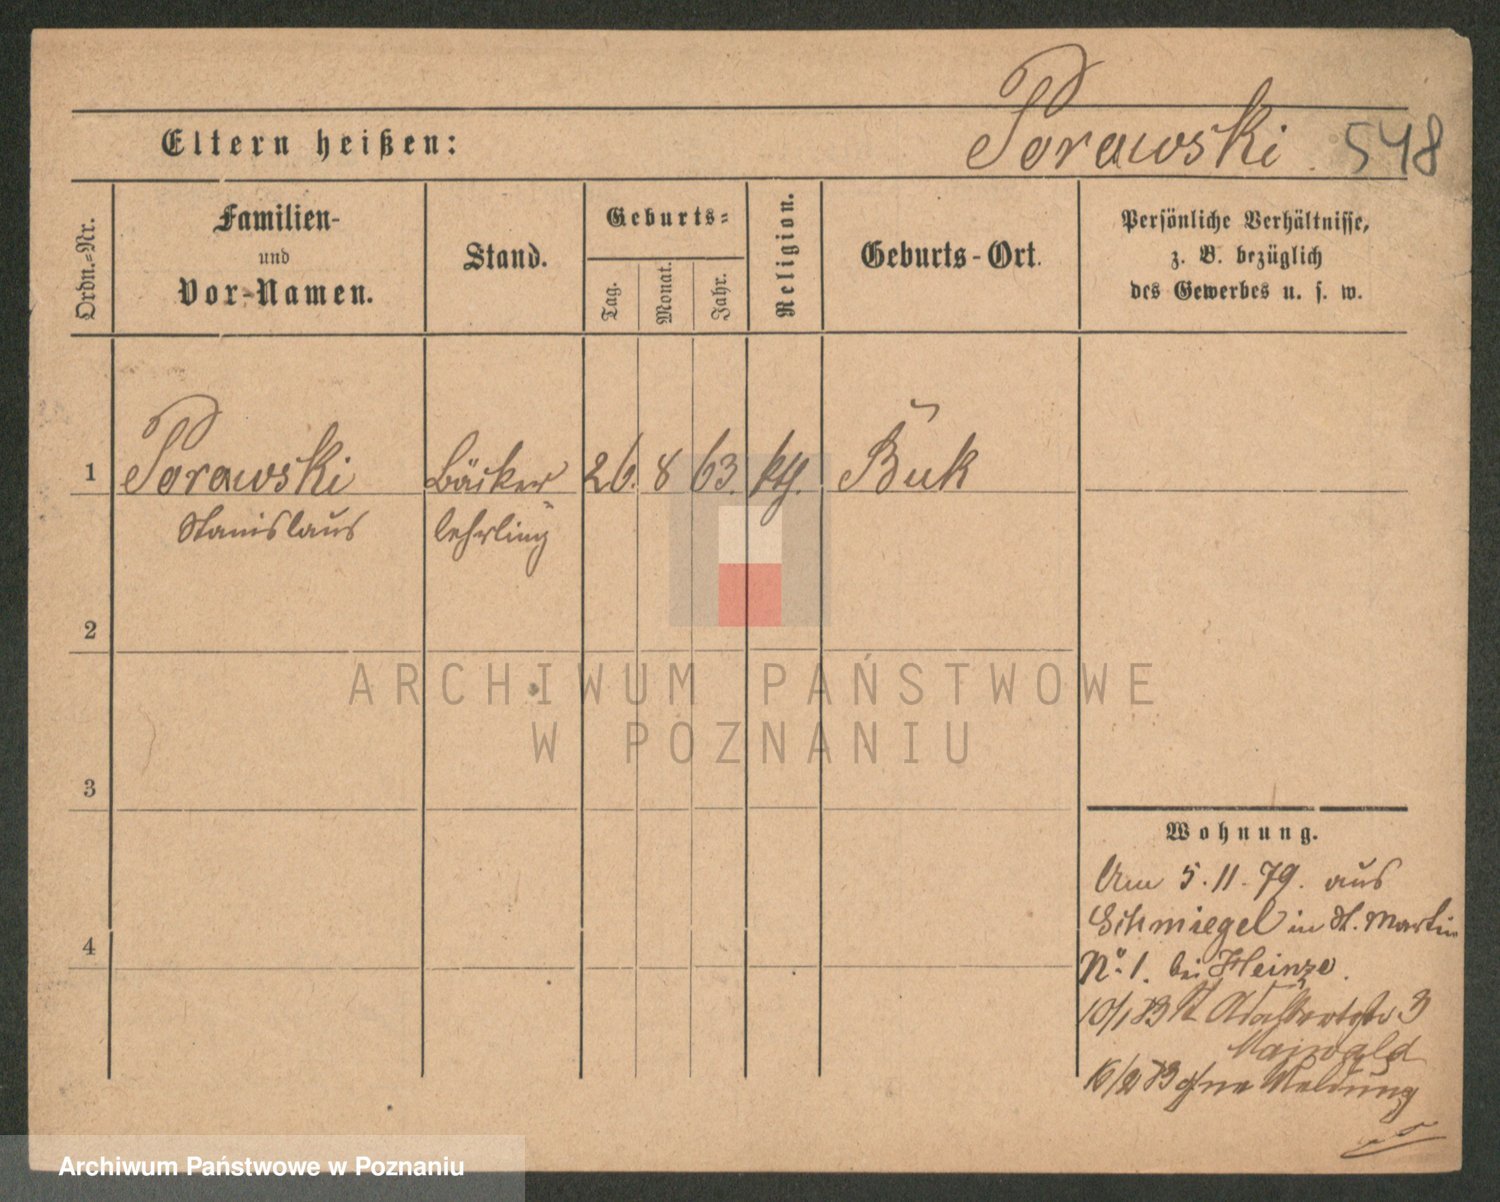 Porawski 548
Eltern heißen:
Ordn.-Nr.
Familien-
und
Vor-Namen.
Stand.
Geburts-
Tag.
Monat.
Jahr.
Religion.
Geburts-Ort.
Persönliche Verhältnisse,
z. B. bezüglich
des Gewerbes u. s. w.
1 Porawski Bäcker 26. 8 63. kth. Buk
Stanislaus lehrling
2
ARCHIWUM PAŃSTWOWE
W POZNANIU
3
Wohnung.
Am 5.11.79. aus
Schmiegel in St. Martin
4
No 1. bei Heinze.
10/1 83 St Adalbertstr 3
16/2 83 ohne Meldung
Archiwum Państwowe w Poznaniu